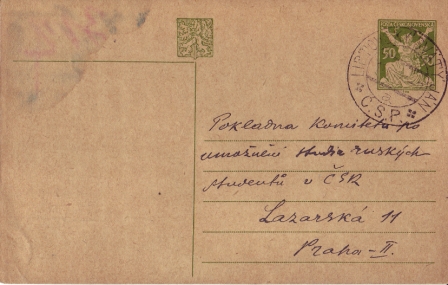 50
Č.S.P.
Pokladna Komitétu po
umožnění studia ruských
studentů v ČSR
Lazarská 11
Praha-II.